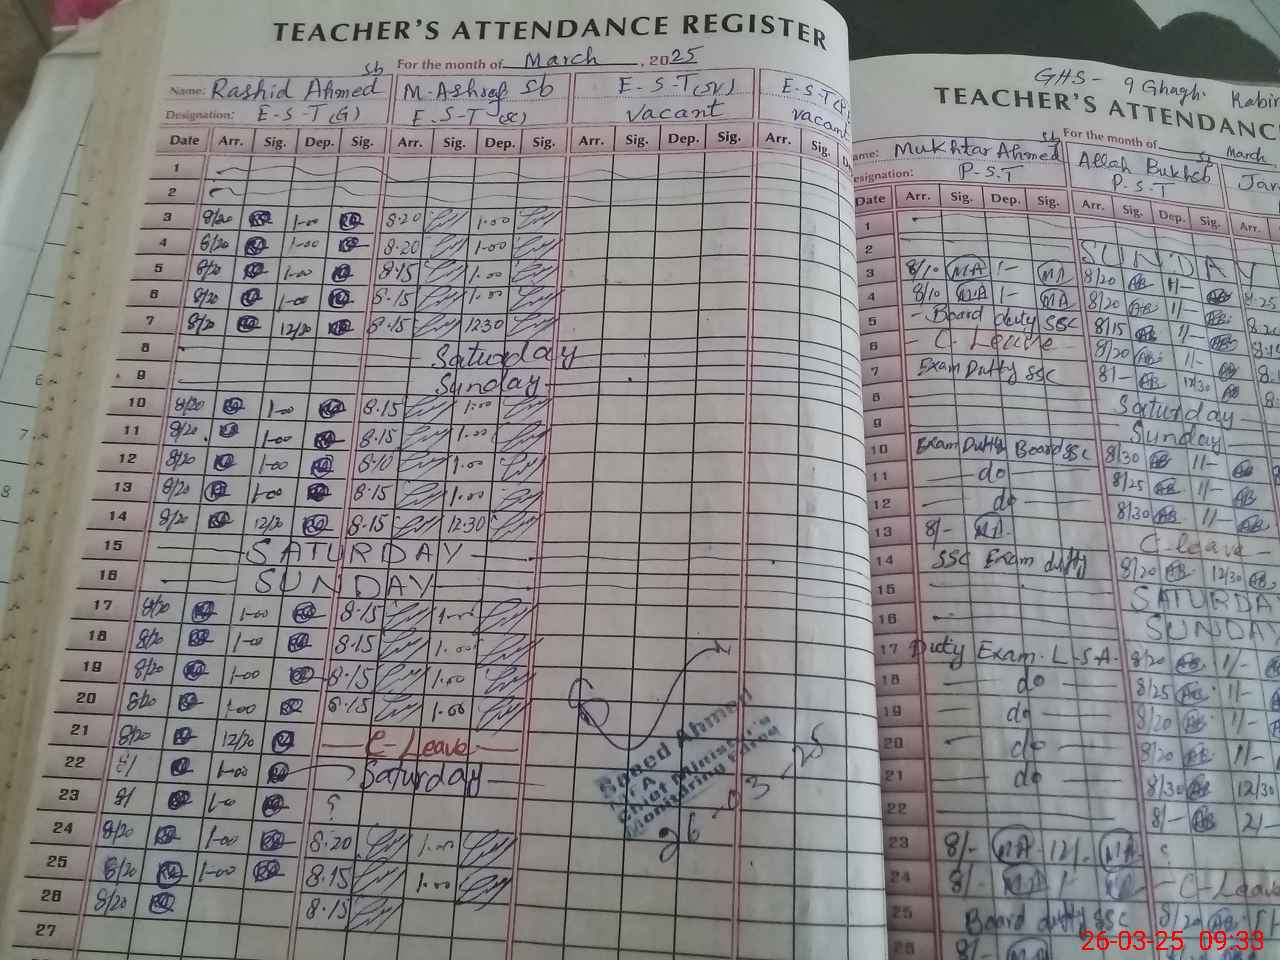 TEACHER'S ATTENDANCE REGISTER
For the month of March, 2025
Name: Rashid Ahmed sb M. Ashraf sb E-S-T(SV) E-S-T
Designation: E-S-T(G) E-S-T vacant vacant
Date Arr. Sig. Dep. Sig. Arr. Sig. Dep. Sig. Arr. Sig. Dep. Sig. Arr. Sig.
1
2
3 8/20 1-00 8-20 1-00
4 8/20 1-00 8-20 1-00
5 8/20 1-00 8-15 1-00
6 8/20 1-00 8-15 1-00
7 8/20 12/20 8-15 12:30
8 Saturday
9 Sunday
10 8/20 1-00 8-15 1-00
11 8/20 1-00 8-15 1-00
12 8/20 1-00 8-10 1-00
13 8/20 1-00 8-15 1-00
14 8/20 12/20 8-15 12-30
15 SATURDAY
16 SUNDAY
17 8/20 1-00 8-15 1-00
18 8/20 1-00 8-15 1-00
19 8/20 1-00 8-15 1-00
20 8/20 1-00 8-15 1-00
21 8/20 12/20 C-Leave
22 8/ 1-00 Saturday
23 8/ 1-0 ?
24 8/20 1-00 8-20 1-00
25 8/20 1-00 8-15 1-00
26 8/20 8-15
27
Saeed Ahmed
Chief Minister's
Monitoring
26-03-25
GHS- 9 Ghagh. Kabir
TEACHER'S ATTENDANC
For the month of March
Mukhtar Ahmed sb Allah Bukhsh sb
P-S-T P-S-T
Date Arr. Sig. Dep. Sig. Arr. Sig. Dep. Sig. Arr.
1
2 SUNDAY
3 8/10 MA 1- MA 8/20 AB 1/- AB 8-25
4 8/10 MA 1- MA 8/20 AB 1/- AB
5 Board duty SSC 8/15 AB 1/- AB
6 C. Leave 8/20 AB 1/- AB
7 Exam Dutty SSC 8/- AB 12/30 AB
8 Saturday
9 Sunday
10 Exam Dutty Board SSC 8/30 AB 1/- AB
11 do 8/25 AB 1/- AB
12 do 8/30 AB 1/- AB
13 8/- MA C-leave
14 SSC Exam dutty 8/20 AB 12/30 AB
15 SATURDA
16 SUNDAY
17 Duty Exam. L.S.A. 8/20 AB 1/-
18 do 8/25 AB 1/-
19 do 8/20 AB 1/-
20 do 8/20 AB 1/-
21 do 8/30 AB 12/30
22 8/- AB 2/-
23 8/- MA 12/- MA
24 8/- MA 1- C-Leave
25 Board dutty SSC 8/20 AB
26 8/- MA
26-03-25 09:33